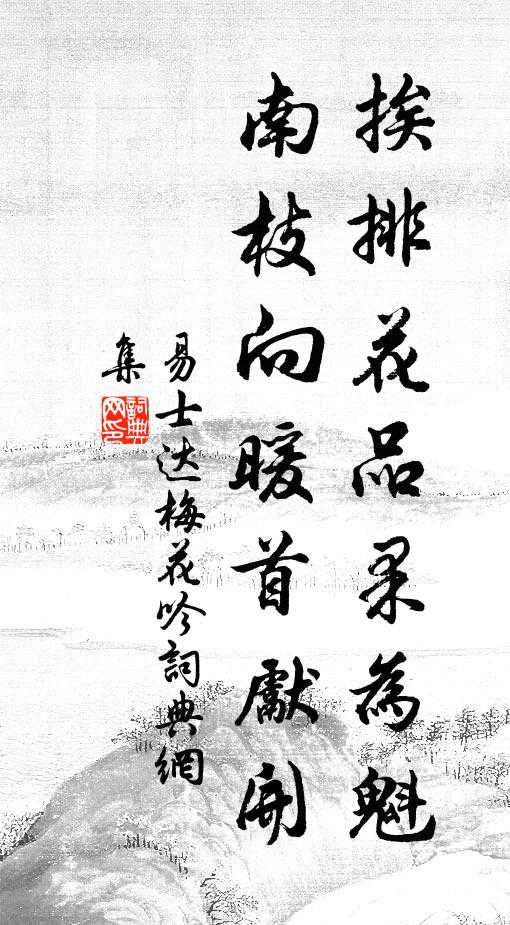 挨排花品果為魁
南枝向暖首獻開
易士达梅花吟詞典網
集
詞典
网印